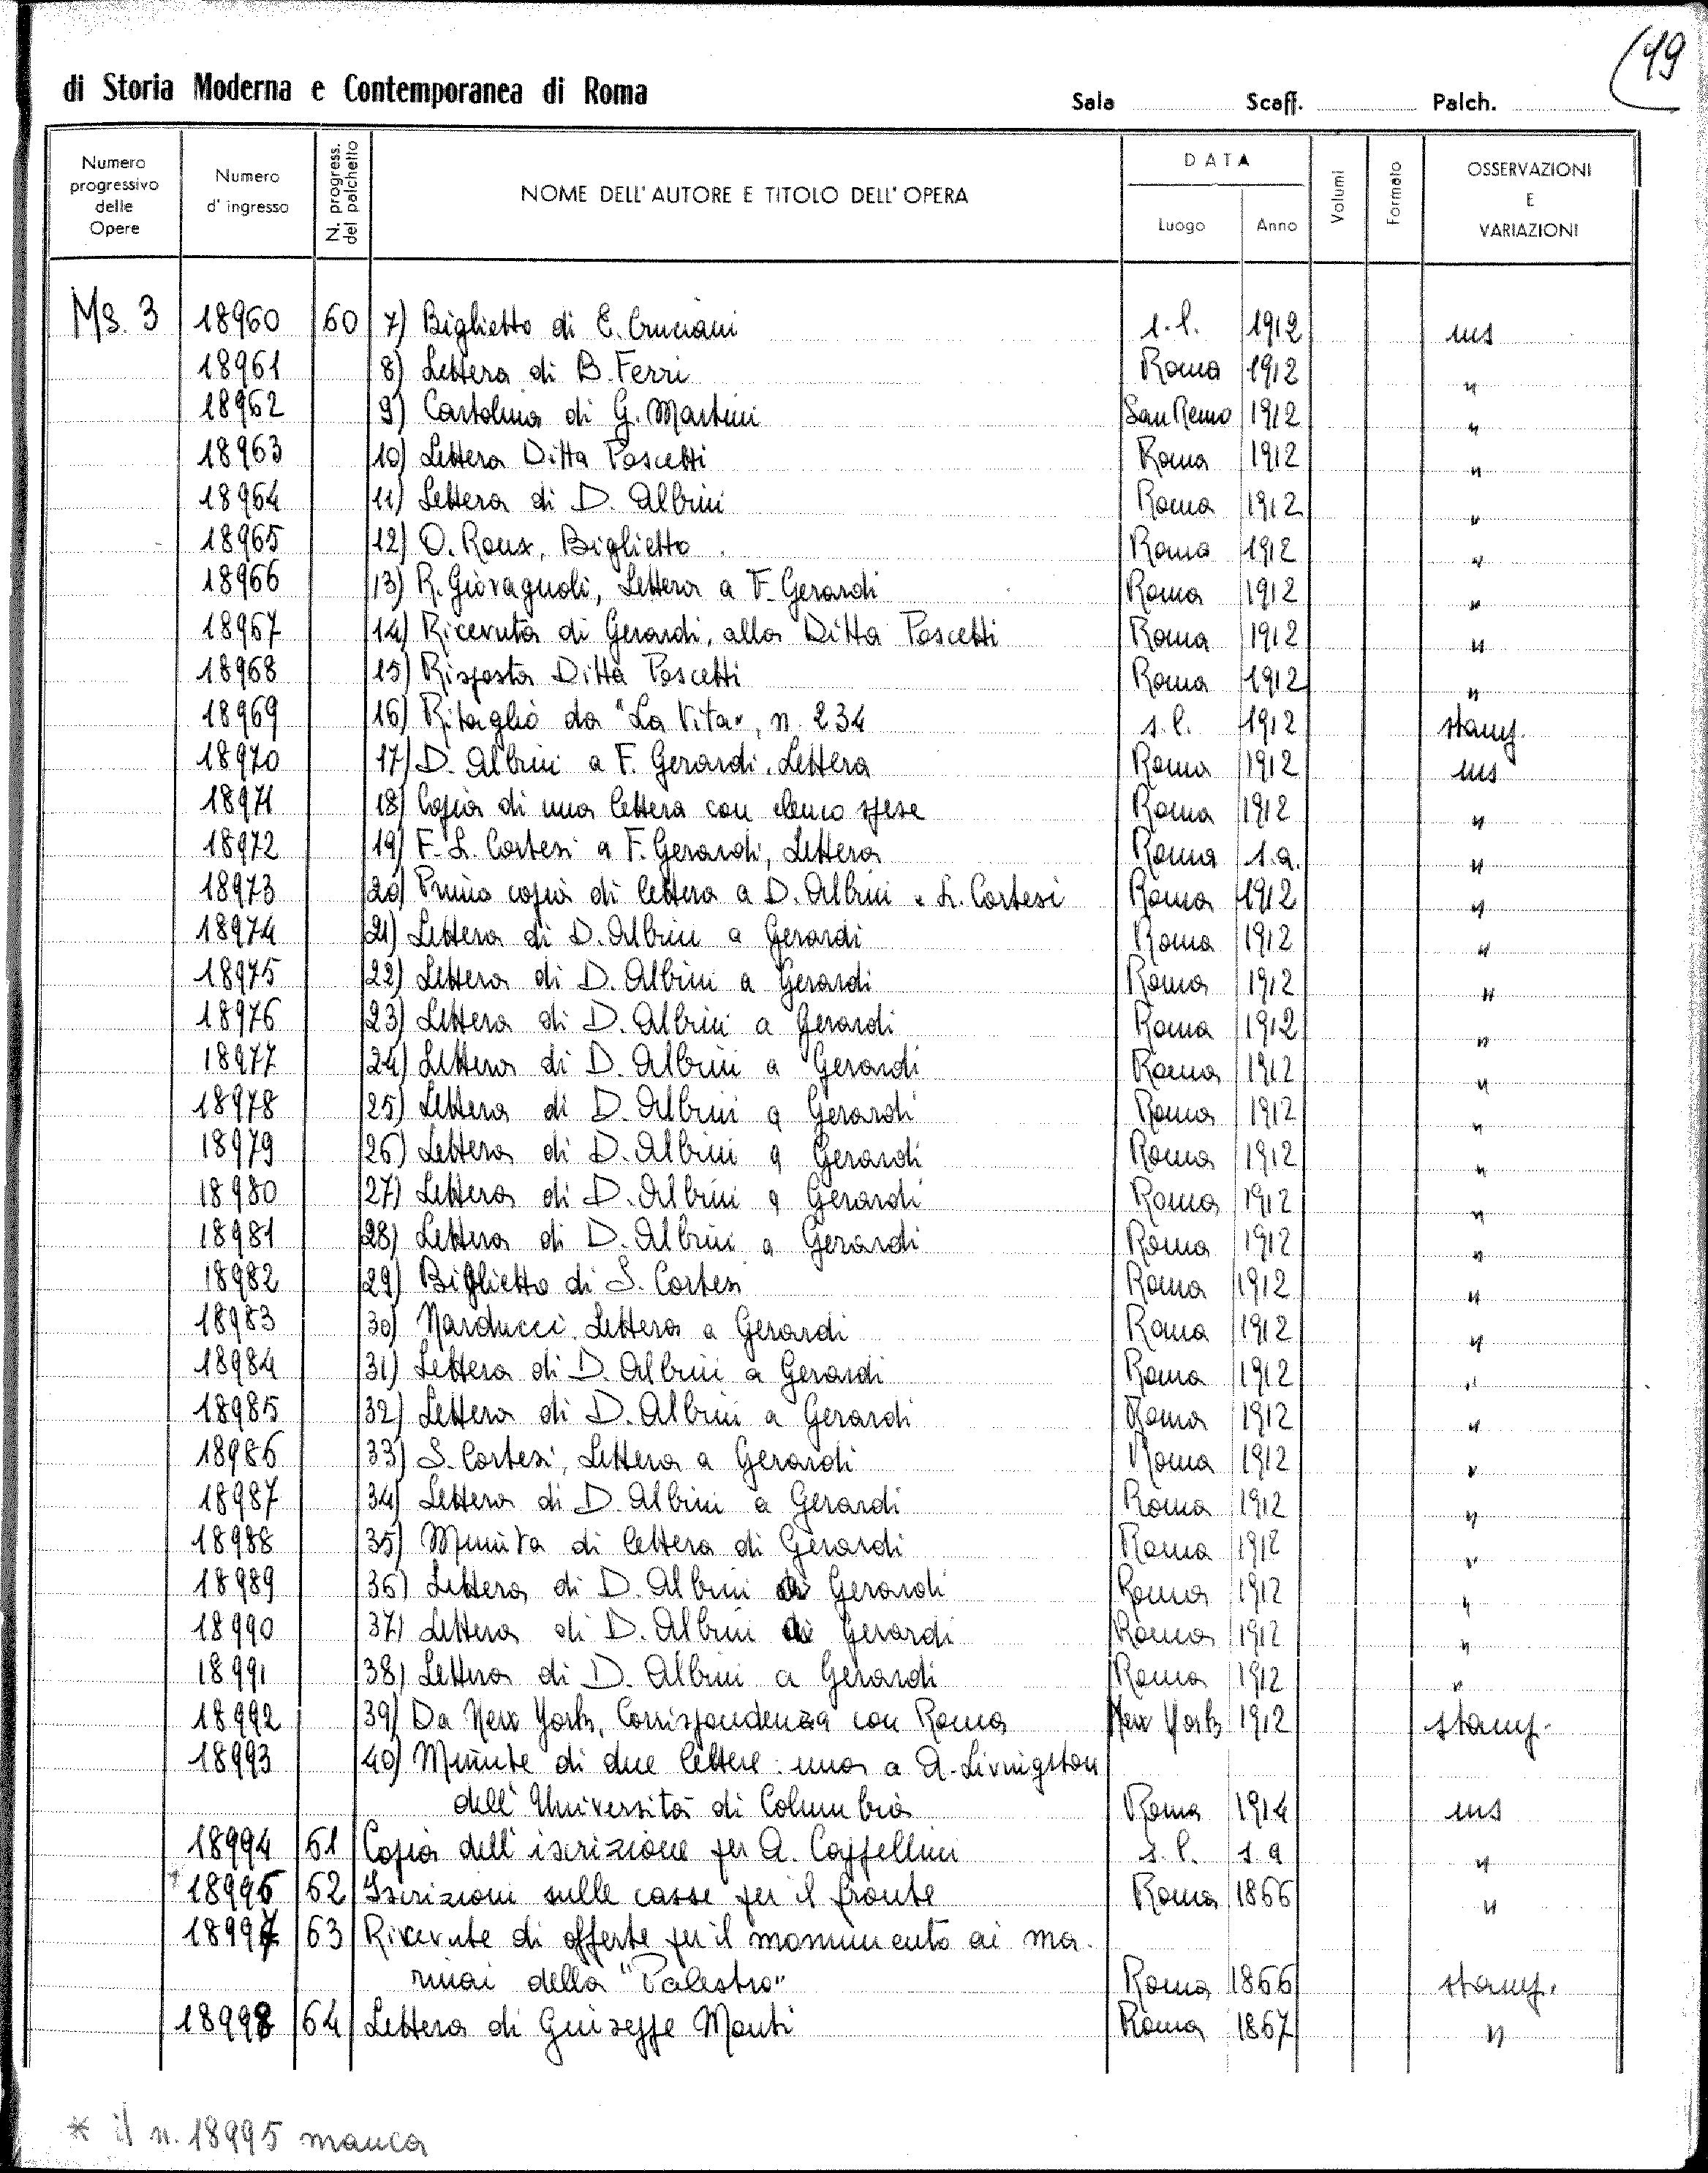 (49
di Storia Moderna e Contemporanea di Roma
Sala Scaff. Palch.
Numero progressivo delle Opere
Numero d' ingresso
N. progress. del palchetto
NOME DELL' AUTORE E TITOLO DELL' OPERA
DATA
Luogo Anno
Volumi
Formato
OSSERVAZIONI E VARIAZIONI
Ms. 3 18960 60 7) Biglietto di E. Cruciani s.l. 1912 ms
18961 8) Lettera di B. Ferri Roma 1912 "
18962 9) Cartolina di G. Martini San Remo 1912 "
18963 10) Lettera Ditta Pascetti Roma 1912 "
18964 11) Lettera di D. Albini Roma 1912 "
18965 12) O. Roux, Biglietto. Roma 1912 "
18966 13) R. Giovagnoli, Lettera a F. Gerardi Roma 1912 "
18967 14) Ricevuta di Gerardi, alla Ditta Pascetti Roma 1912 "
18968 15) Risposta Ditta Pascetti Roma 1912 "
18969 16) Ritaglio da "La Vita", n. 234 s.l. 1912 stamp.
18970 17) D. Albini a F. Gerardi, Lettera Roma 1912 ms
18971 18) Copia di una lettera con elenco spese Roma 1912 "
18972 19) F. L. Cortesi a F. Gerardi, Lettera Roma s.a. "
18973 20) Prima copia di lettera a D. Albini e L. Cortesi Roma 1912 "
18974 21) Lettera di D. Albini a Gerardi Roma 1912 "
18975 22) Lettera di D. Albini a Gerardi Roma 1912 "
18976 23) Lettera di D. Albini a Gerardi Roma 1912 "
18977 24) Lettera di D. Albini a Gerardi Roma 1912 "
18978 25) Lettera di D. Albini a Gerardi Roma 1912 "
18979 26) Lettera di D. Albini a Gerardi Roma 1912 "
18980 27) Lettera di D. Albini a Gerardi Roma 1912 "
18981 28) Lettera di D. Albini a Gerardi Roma 1912 "
18982 29) Biglietto di S. Cortesi Roma 1912 "
18983 30) Narducci. Lettera a Gerardi Roma 1912 "
18984 31) Lettera di D. Albini a Gerardi Roma 1912 "
18985 32) Lettera di D. Albini a Gerardi Roma 1912 "
18986 33) S. Cortesi, Lettera a Gerardi Roma 1912 "
18987 34) Lettera di D. Albini a Gerardi Roma 1912 "
18988 35) Minuta di lettera di Gerardi Roma 1912 "
18989 36) Lettera di D. Albini a Gerardi Roma 1912 "
18990 37) Lettera di D. Albini a Gerardi Roma 1912 "
18991 38) Lettera di D. Albini a Gerardi Roma 1912 "
18992 39) Da New York, Corrispondenza con Roma New York 1912 stamp.
18993 40) Minute di due lettere: una a A. Livingston
dell' Università di Columbia Roma 1914 ms
18994 61 Copia dell' iscrizione per A. Cappellini s.l. s.a "
* 18996 62 Iscrizioni sulle casse per il fronte Roma 1866 "
18997 63 Ricevute di offerte per il monumento ai ma-
rinai della "Palestro" Roma 1866 stamp.
18998 64 Lettera di Giuseppe Monti Roma 1867 "
* il n. 18995 manca